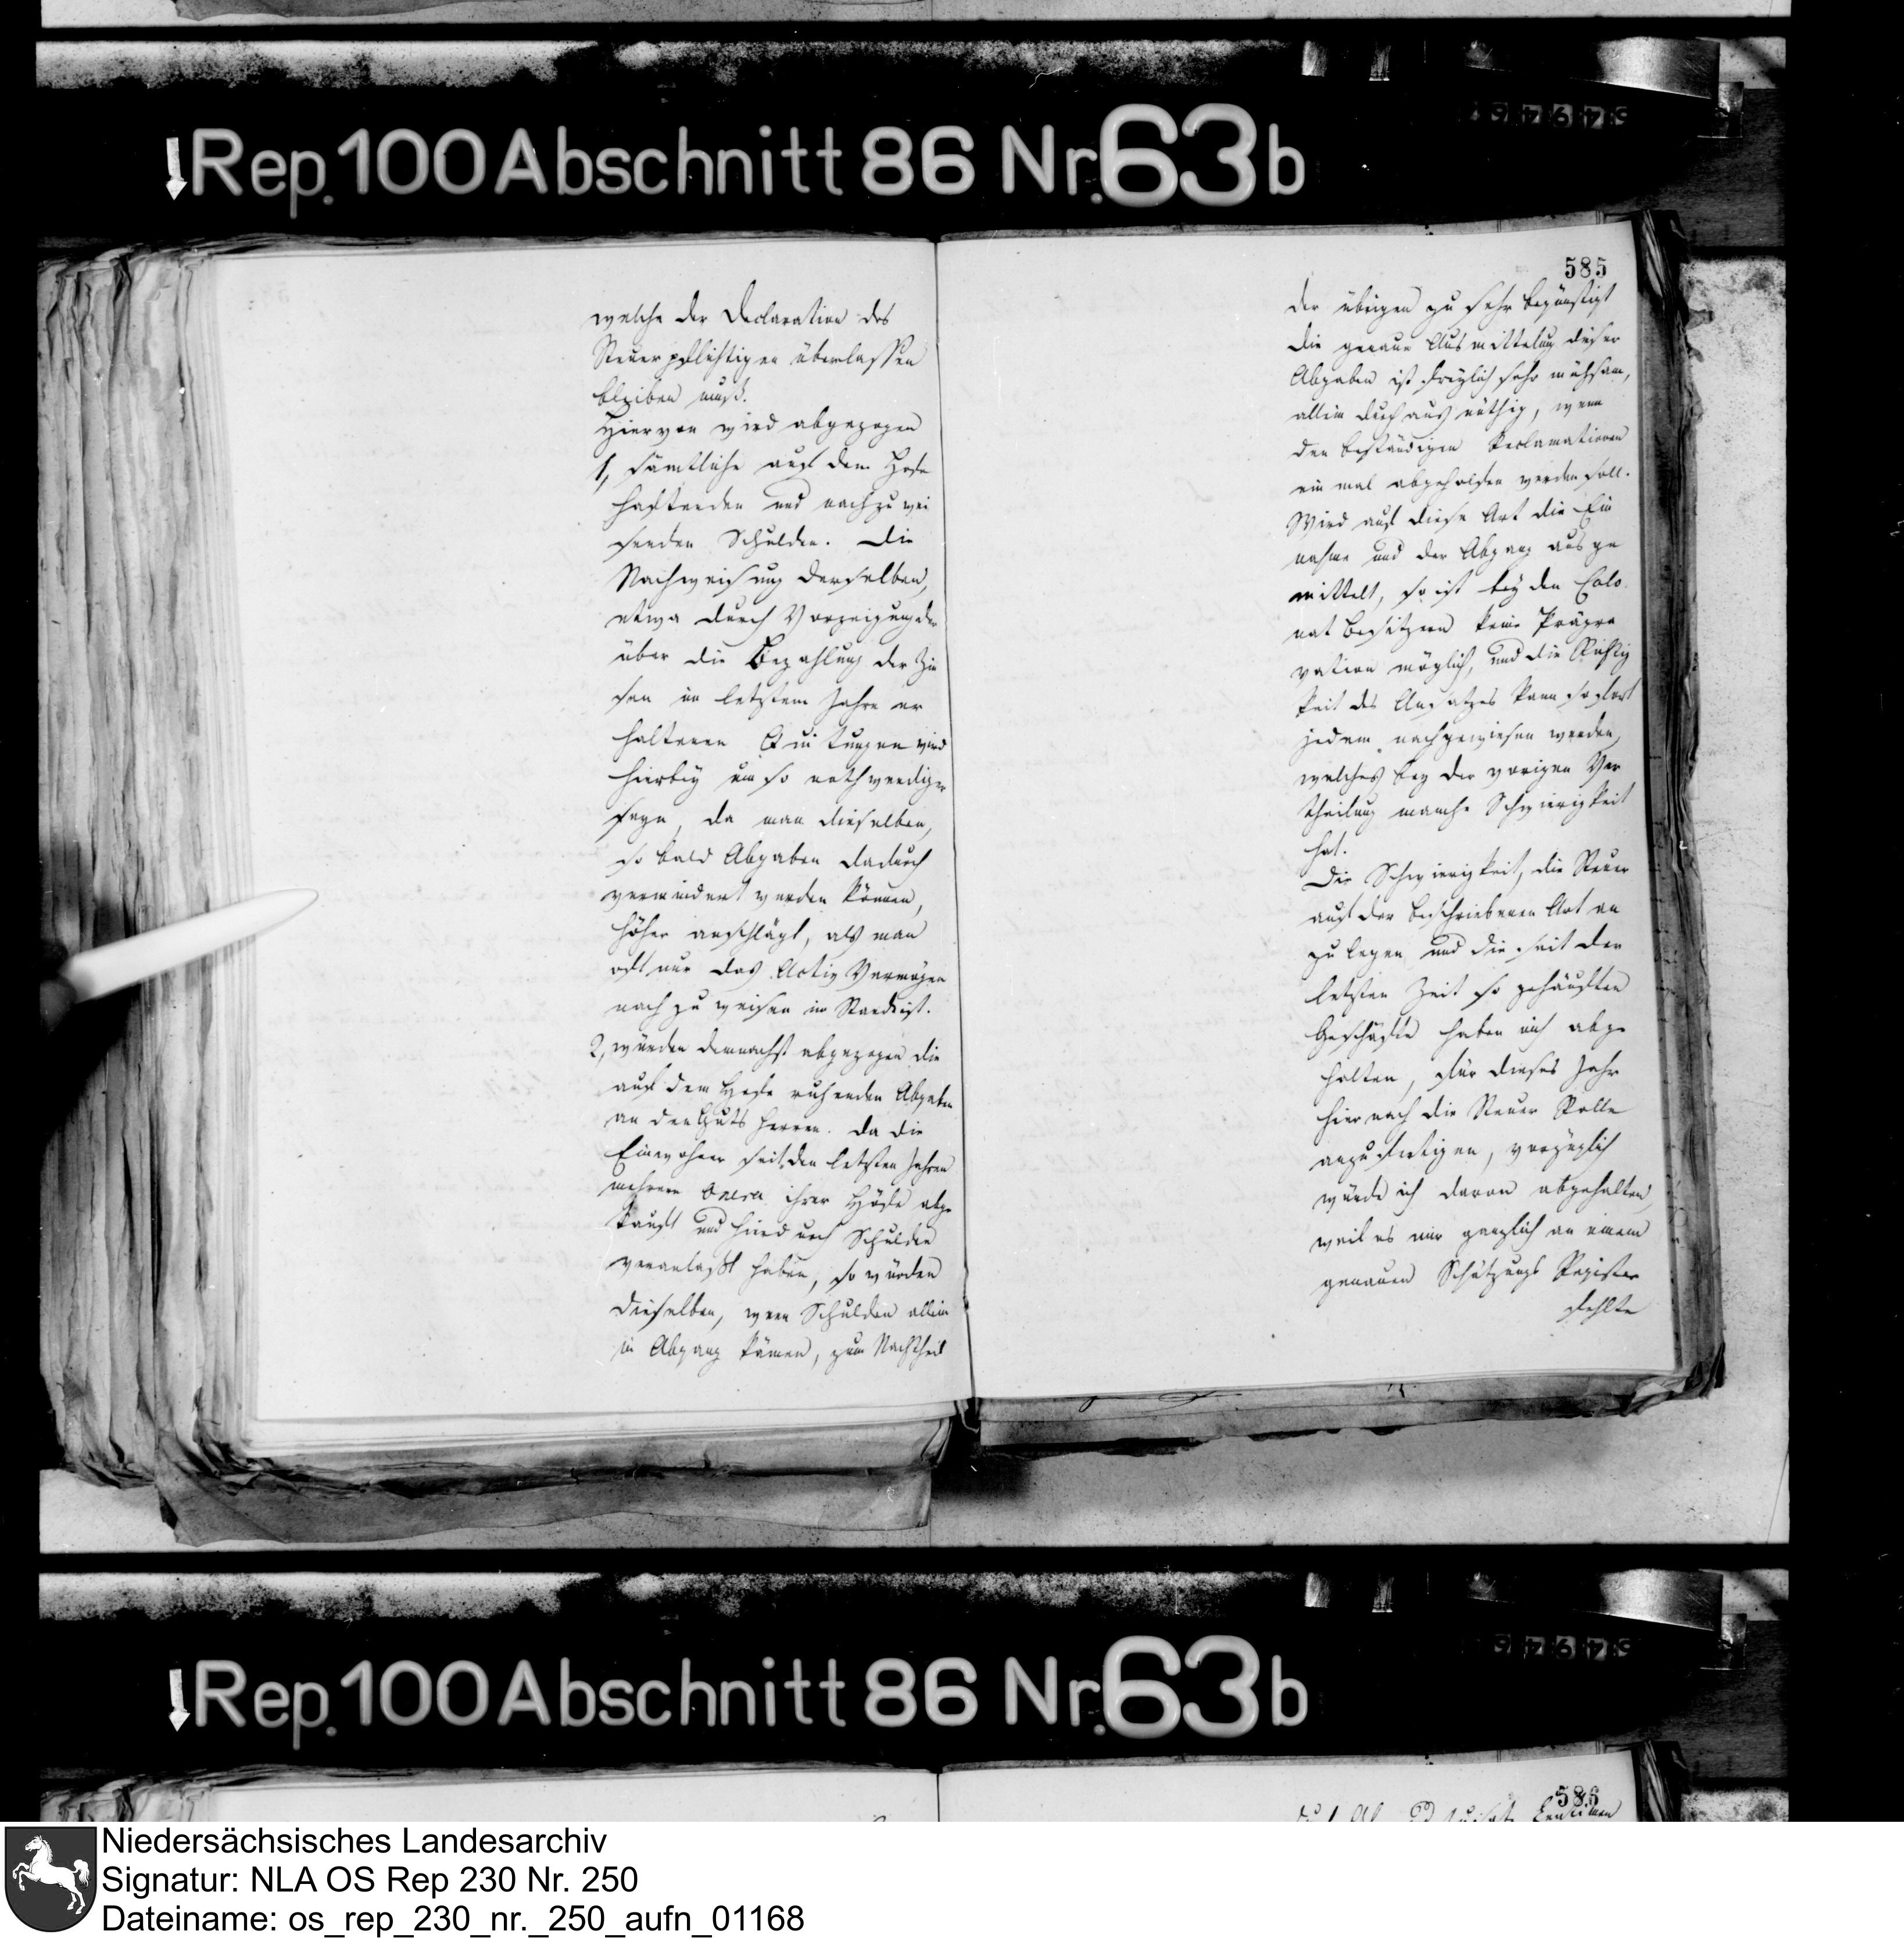 Rep. 100 Abschnitt 86 Nr. 63b
welche der Declaration des
Steuerpflichtigen überlassen
bleiben muß.
Hiervon wird abgezogen
1, sämtliche auf dem Hofe
haftenden und nachzuwei
senden Schulden. Die
Nachweisung derselben,
etwa durch Vorzeigung der
über die Bezahlung der Zin
sen im letztem Jahre er
haltenen Quitungen wird
hierbey um so nothwendiger
seyn, da man dieselben,
so bald Abgaben dadurch
vermindert werden können,
höher anschlägt, als man
oft nur das Activ Vermögen
nach zu weisen im Stande ist.
2, würden demnachst abgezogen die
auf dem Hofe ruhenden Abgaben
an den Guts herren. Da die
Einwohner seit den letzten Jahren
mehrere Onera ihrer Höfe abge
kauft und hierdurch Schulden
veranlaßt haben, so würden
dieselben, wenn Schulden allein
in Abgang kämen, zum Nachtheil
585
der übrigen zu sehr begünstigt
die genaue Ausmittelung dieser
Abgaben ist freylich sehr mühsam,
allein durchaus nöthig, wenn
den beständigen Reclamationen
ein mal abgeholfen werden soll.
Wird auf diese Art die Ein
nahme und der Abgang ausge
mittelt, so ist bey den Colo
nat Besitzern keine Prägra
vation möglich, und die Richtig
keit des Ansatzes kann sofort
jedem nachgewiesen werden,
welches bey der vorigen Ver
theilung manche Schwierigkeit
hat.
Die Schwierigkeit, die Steuer
auf der beschriebenen Art an
zu legen und die seit der
letzten Zeit so gehäuften
Geschäfte haben mich abge
halten, für dieses Jahr
hiernach die Steuer Rolle
anzufertigen, vorzüglich
wurde ich davon abgehalten,
weil es mir gänzlich an einem
genauen Schatzungs Register
fehlte
Rep. 100 Abschnitt 86 Nr. 63b
586
Niedersächsisches Landesarchiv
Signatur: NLA OS Rep 230 Nr. 250
Dateiname: os_rep_230_nr._250_aufn_01168